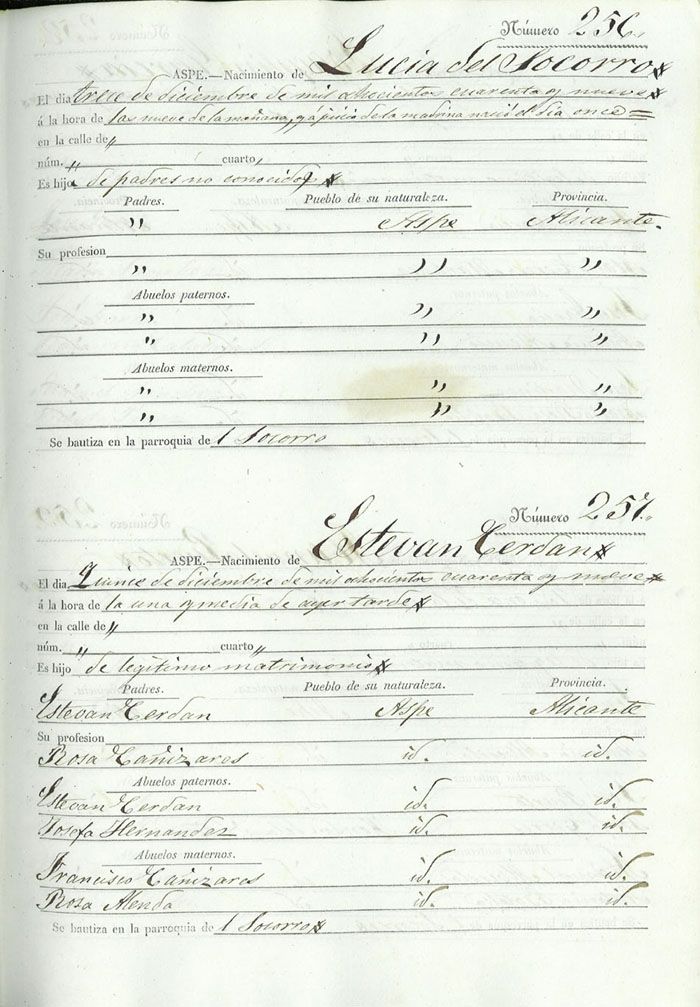 Número 256.
ASPE.—Nacimiento de Lucia del Socorro
El dia trece de diciembre de mil ochocientos cuarenta y nueve
á la hora de las nueve de la mañana, y a juicio de la madrina nació el dia once =
en la calle de "
núm. " cuarto "
Es hija de padres no conocidos
Padres. Pueblo de su naturaleza. Provincia.
" Aspe Alicante.
Su profesion
" " "
Abuelos paternos.
" " "
" " "
Abuelos maternos.
" " "
" " "
Se bautiza en la parroquia de l Socorro
Número 257.
ASPE.—Nacimiento de Estevan Cerdan
El dia Quince de diciembre de mil ochocientos cuarenta y nueve
á la hora de la una y media de ayer tarde
en la calle de "
núm. " cuarto "
Es hijo de legitimo matrimonio
Padres. Pueblo de su naturaleza. Provincia.
Estevan Cerdan Aspe Alicante
Su profesion
Rosa Cañizares id. id.
Abuelos paternos.
Estevan Cerdan id. id.
Josefa Hernandez id. id.
Abuelos maternos.
Francisco Cañizares id. id.
Rosa Alenda id. id.
Se bautiza en la parroquia de l Socorro